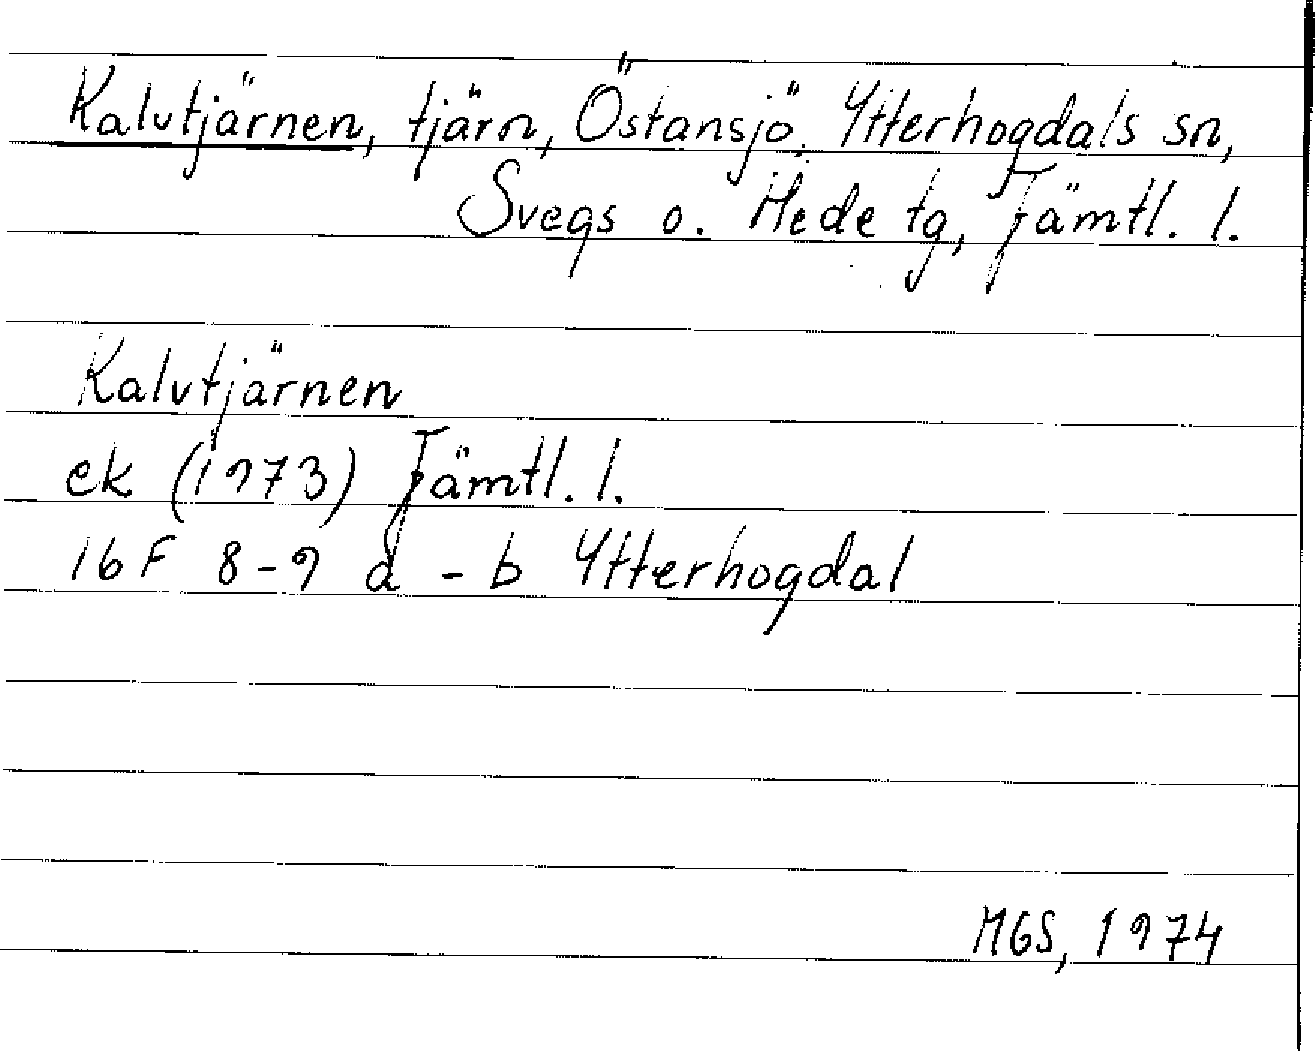 Kalvtjärnen, tjärn, Östansjö, Ytterhogdals sn,
Svegs o. Hede tg, Jämtl. l.
Kalvtjärnen
ek (1973) Jämtl. l.
16 F 8-9 a - b Ytterhogdal
MGS, 1974